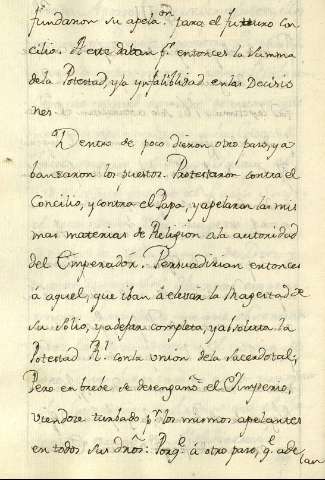 fundaron su apelaon. para el futuro Con
cilio. A este daban pr. entonces la summa
de la Potestad, y la ynfalibilidad en las Decisio
nes.
Dentro de poco dieron otro paso, y a
banzaron los puestos. Protestaron contra el
Concilio, y contra el Papa, y apelaron las mis
mas materias de Religion a la autoridad
del Emperador. Persuadirian entonces
á aquel, que iban á elevar la Magestad de
su solio, y a dejar completa, y absoluta la
Potestad Rl. con la union de la sacerdotal;
Pero en brebe se desengañó el Ymperio,
viendose turbado pr. los mismos apelantes
en todos sus dros: Porqe. á otro paso, qe. ade
lan